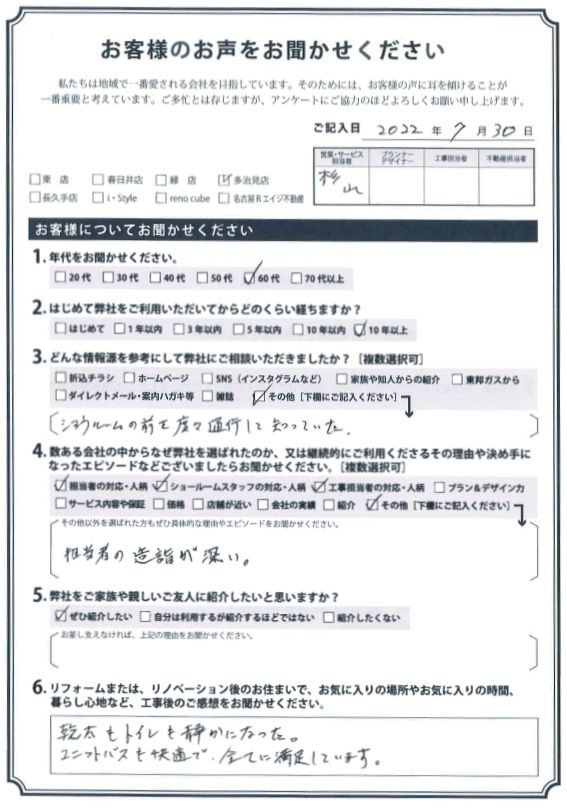 お客様のお声をお聞かせください
私たちは地域で一番愛される会社を目指しています。そのためには、お客様の声に耳を傾けることが
一番重要と考えています。ご多忙とは存じますが、アンケートにご協力のほどよろしくお願い申し上げます。
ご記入日 2022 年 7 月 30 日
営業・サービス担当者 プランナーデザイナー 工事担当者 不動産担当者
杉山
□東 店 □春日井店 □緑 店 ☑多治見店
□長久手店 □i・Style □reno cube □名古屋Rエイジ不動産
お客様についてお聞かせください
1. 年代をお聞かせください。
□20代 □30代 □40代 □50代 ☑60代 □70代以上
2. はじめて弊社をご利用いただいてからどのくらい経ちますか？
□はじめて □1年以内 □3年以内 □5年以内 □10年以内 ☑10年以上
3. どんな情報源を参考にして弊社にご相談いただきましたか？［複数選択可］
□折込チラシ □ホームページ □SNS（インスタグラムなど） □家族や知人からの紹介 □東邦ガスから
□ダイレクトメール・案内ハガキ等 □雑誌 ☑その他［下欄にご記入ください］
ショウルームの前を度々通行して知っていた。
4. 数ある会社の中からなぜ弊社を選ばれたのか、又は継続的にご利用くださるその理由や決め手に
なったエピソードなどございましたらお聞かせください。［複数選択可］
☑担当者の対応・人柄 ☑ショールームスタッフの対応・人柄 ☑工事担当者の対応・人柄 □プラン＆デザイン力
□サービス内容や保証 □価格 □店舗が近い □会社の実績 □紹介 ☑その他［下欄にご記入ください］
その他以外を選ばれた方もぜひ具体的な理由やエピソードをお聞かせください。
担当者の造詣が深い。
5. 弊社をご家族や親しいご友人に紹介したいと思いますか？
☑ぜひ紹介したい □自分は利用するが紹介するほどではない □紹介したくない
お差し支えなければ、上記の理由をお聞かせください。
6. リフォームまたは、リノベーション後のお住まいで、お気に入りの場所やお気に入りの時間、
暮らし心地など、工事後のご感想をお聞かせください。
乾太もトイレも静かになった。
ユニットバスも快適で、全てに満足しています。